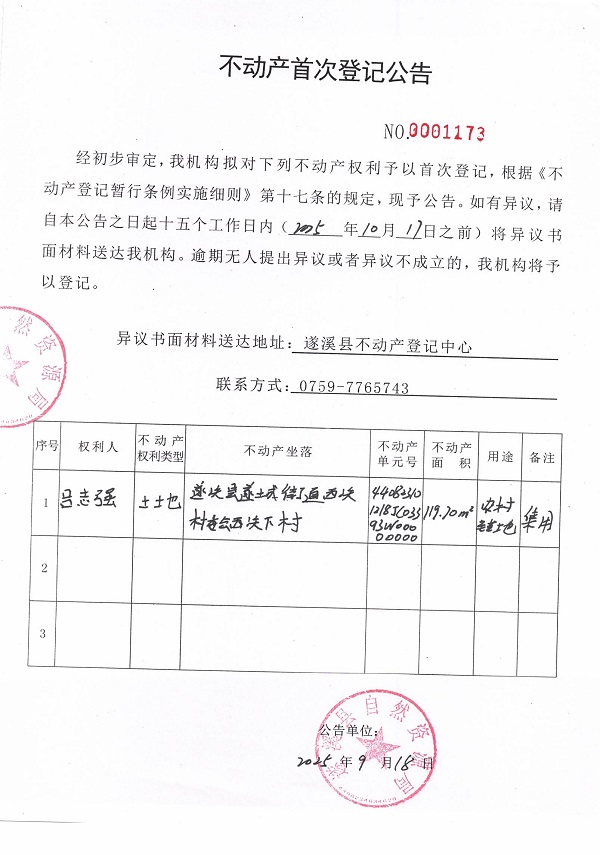 不动产首次登记公告
NO.0001173
经初步审定，我机构拟对下列不动产权利予以首次登记，根据《不
动产登记暂行条例实施细则》第十七条的规定，现予公告。如有异议，请
自本公告之日起十五个工作日内（2025年10月17日之前）将异议书
面材料送达我机构。逾期无人提出异议或者异议不成立的，我机构将予
以登记。
然资源局
异议书面材料送达地址：遂溪县不动产登记中心
联系方式：0759-7765743
序号 权利人 不动产权利类型 不动产坐落 不动产单元号 不动产面积 用途 备注
1 吕志强 土地 遂溪县遂城街道西溪 119.70m² 农村 集用
村委会西溪下村 宅基地
2
3
遂溪县自然资源局
公告单位：
2025年9月18日